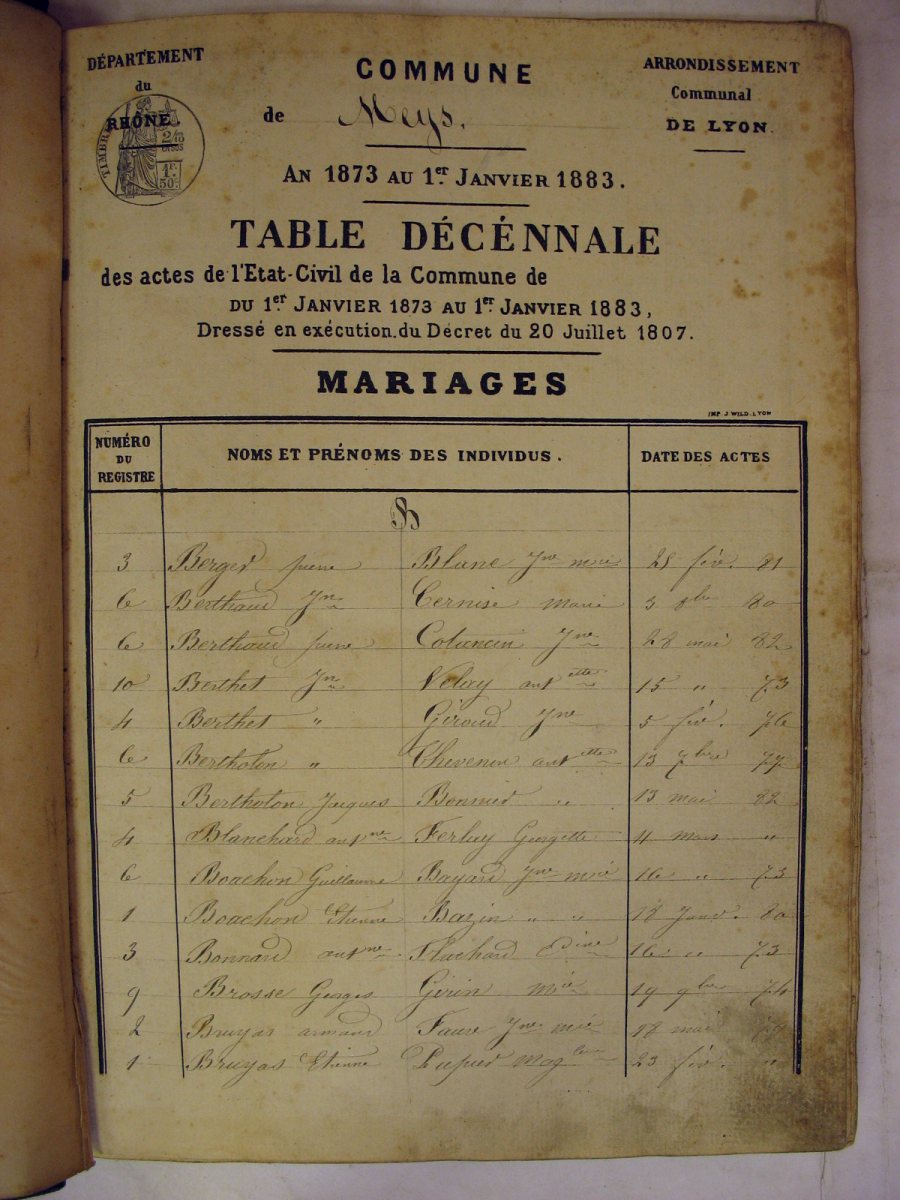 DÉPARTEMENT
du
RHÔNE.
TIMBRE
2/10
EN SUS
1F.
50c
COMMUNE
de Meys.
ARRONDISSEMENT
Communal
DE LYON.
AN 1873 AU 1er JANVIER 1883.
TABLE DÉCÉNNALE
des actes de l'Etat-Civil de la Commune de
DU 1er JANVIER 1873 AU 1er JANVIER 1883,
Dressé en exécution du Décret du 20 Juillet 1807.
MARIAGES
IMP. J. WILD. LYON
NUMÉRO DU REGISTRE NOMS ET PRÉNOMS DES INDIVIDUS. DATE DES ACTES
B
3 Berger pierre Blanc Jne marie 28 fév. 81
6 Berthaud Jn Cernise marie 3 8bre 80
6 Berthaud pierre Colancin Jne 28 mai 82
10 Berthet Jn Velay antette 15 " 73
4 Berthet " Giroud Jne 5 fév. 76
6 Bertholon " Chevenin antette 13 7bre 77
5 Bertholon Jacques Bonnier " 13 mai 82
4 Blanchard antne Ferlay Georgette 4 mars "
6 Boachon Guillaume Bayard Jne mie 16 " 73
1 Boachon Etienne Bazin " " 18 Janv. 80
3 Bonnard antne Flachard 16 " 73
9 Brosse Georges Girin mie 19 9bre 74
2 Bruyas armand Faure Jne mie 18 mai
1 Bruyas Etienne Pupier 23 fév. "